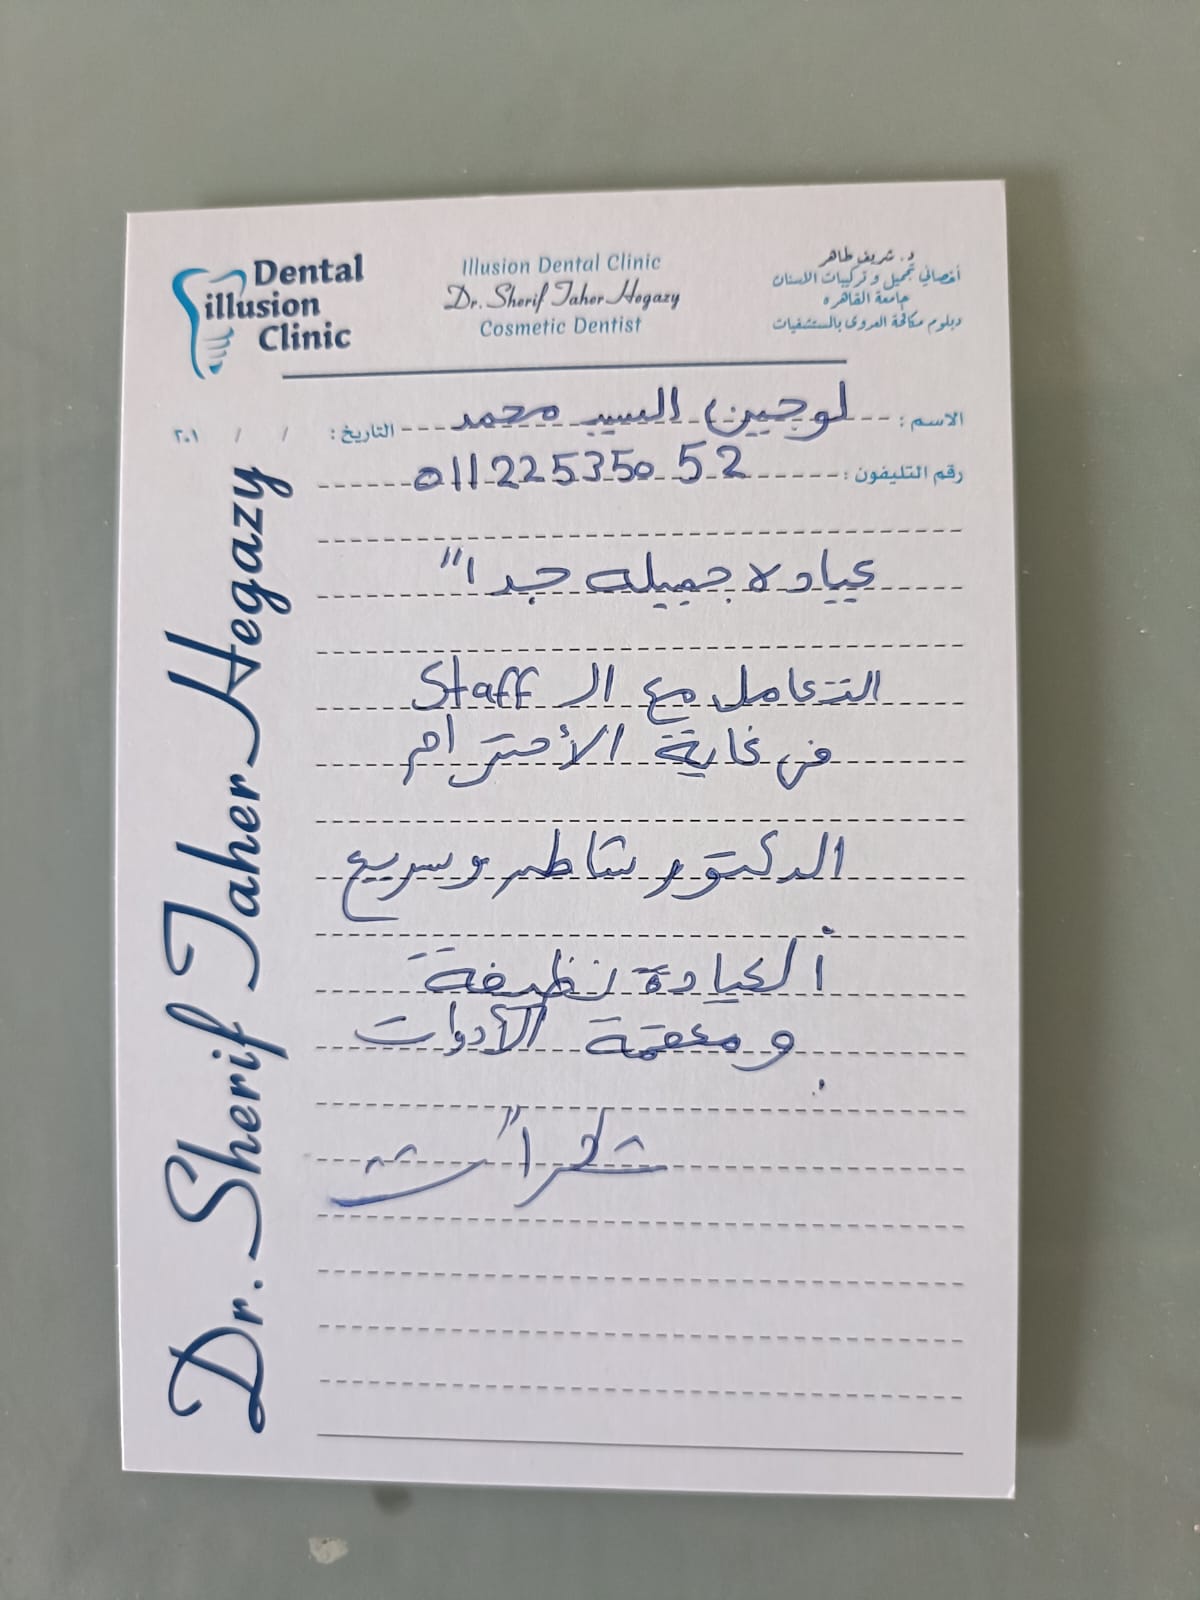 Dental
illusion
Clinic
Illusion Dental Clinic
Dr. Sherif Taher Hegazy
Cosmetic Dentist
د. شريف طاهر
أخصائي تجميل و تركيبات الاسنان
جامعة القاهره
دبلوم مكافحة العدوى بالمستشفيات
الاسم : لوجين السيد محمد التاريخ : / / ٢٠١
رقم التليفون : 01122535052
عياده جميله جداً
التعامل مع ال Staff
فى غاية الأحترام
الدكتور شاطر وسريع
العيادة نظيفة
ومعقمة الأدوات
شكراً
Dr. Sherif Taher Hegazy